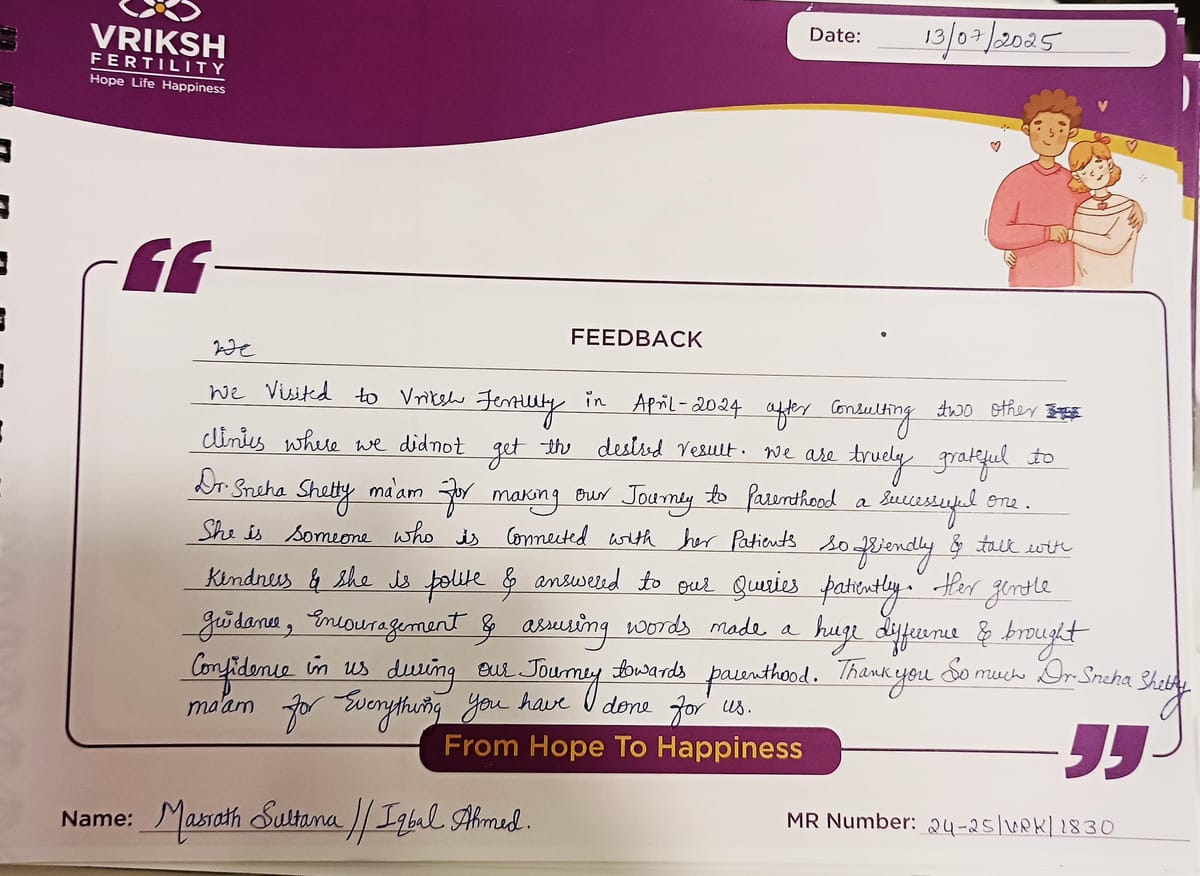 VRIKSH
FERTILITY
Hope Life Happiness
Date: 13/07/2025
FEEDBACK
We
We Visited to Vriksh Fertility in April-2024 after Consulting two other
clinics where we didnot get the desired result. we are truely grateful to
Dr. Sneha Shetty ma'am for making our Journey to Parenthood a Successful one.
She is Someone who is Connected with her Patients so friendly & talk with
Kindness & she is polite & answered to our Queries patiently. Her gentle
guidance, Encouragement & assuring words made a huge difference & brought
Confidence in us during our Journey towards parenthood. Thank you So much Dr Sneha Shetty
ma'am for Everything you have done for us.
From Hope To Happiness
Name: Masrath Sultana // Iqbal Ahmed.
MR Number: 24-25/VRK/1830